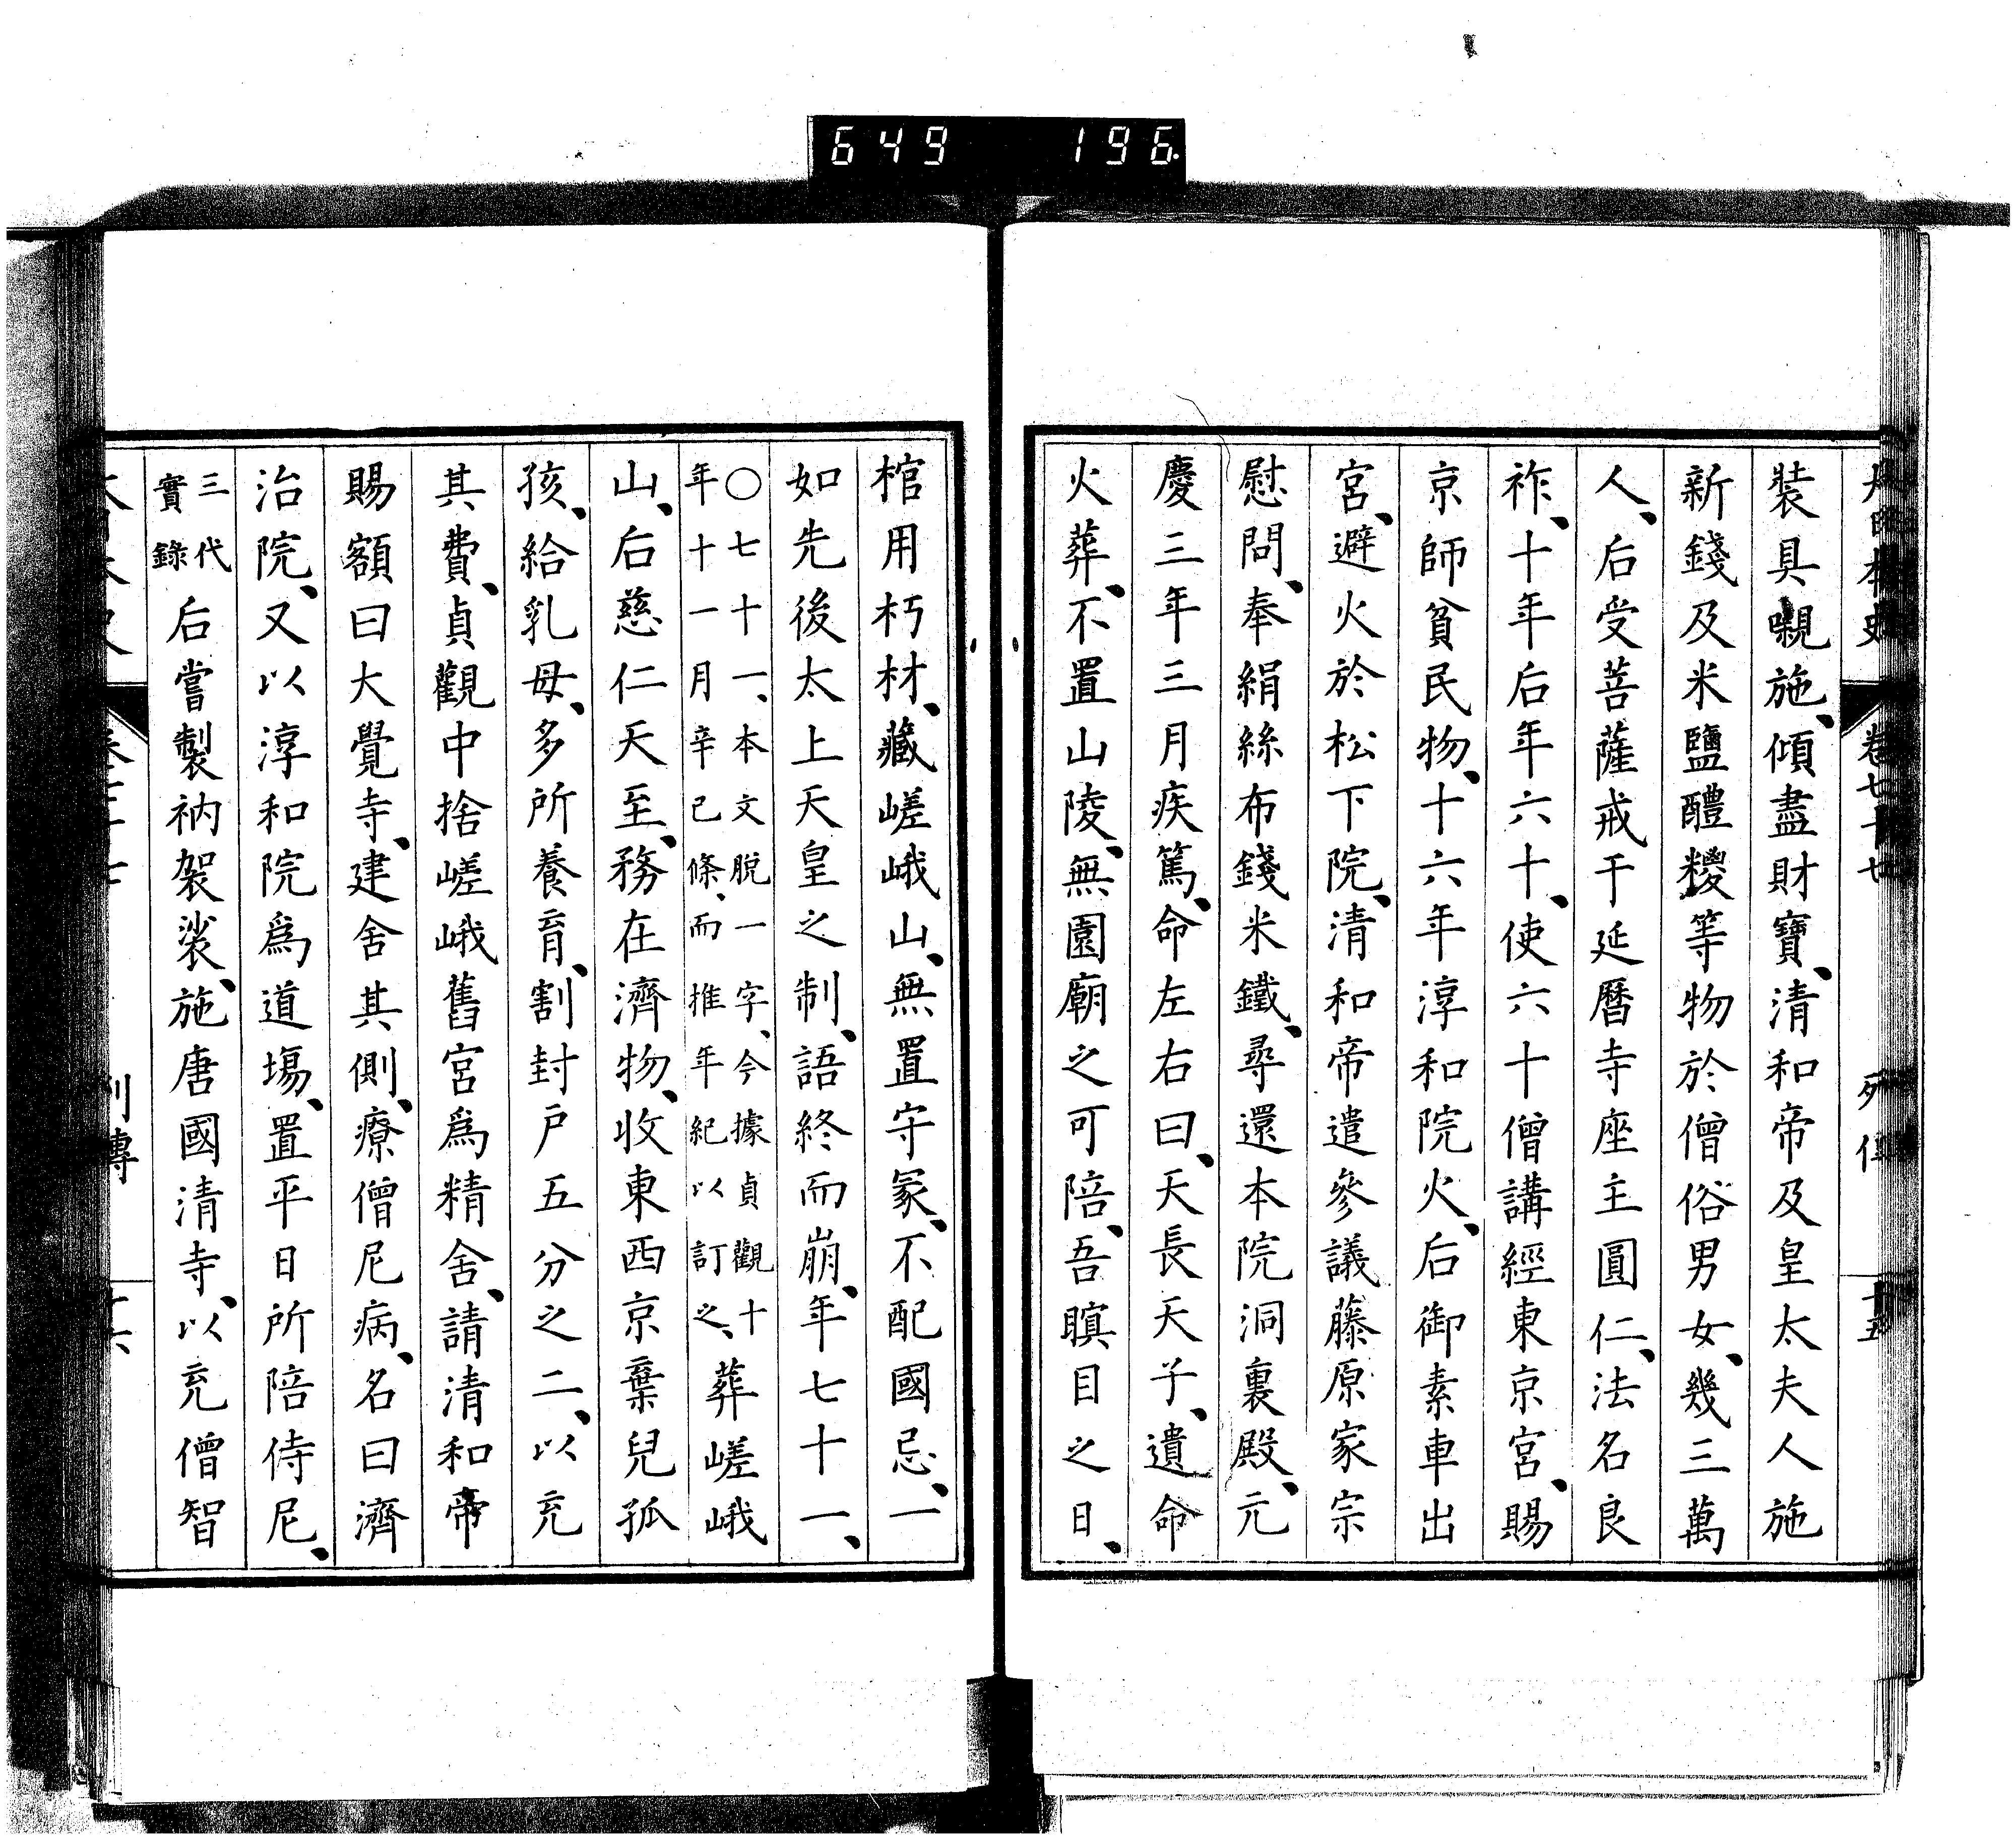 649 196.
卷七十七
十五
裝具䞋施、傾盡財寶、清和帝及皇太夫人施
新錢及米鹽醴糉等物於僧俗男女、幾三萬
人、后受菩薩戒于延曆寺座主圓仁、法名良
祚、十年后年六十、使六十僧講經東京宮、賜
京師貧民物、十六年淳和院火、后御素車出
宮、避火於松下院、清和帝遣參議藤原家宗
慰問、奉絹絲布錢米鐵、尋還本院洞裏殿、元
慶三年三月疾篤、命左右曰、天長天子、遺命
火葬、不置山陵、無園廟之可陪、吾瞑目之日、
棺用朽材、藏嵯峨山、無置守冢、不配國忌、一
如先後太上天皇之制、語終而崩、年七十一、
〇七十一、本文脫一字、今據貞觀十
年十一月辛已條、而推年紀以訂之、葬嵯峨
山、后慈仁天至、務在濟物、收東西京棄兒孤
孩、給乳母、多所養育、割封戶五分之二、以充
其費、貞觀中捨嵯峨舊宮爲精舍、請清和帝
賜額曰大覺寺、建舍其側、療僧尼病、名曰濟
治院、又以淳和院爲道場、置平日所陪侍尼、
三代
實錄 后嘗製衲袈裟、施唐國清寺、以充僧智
列傳